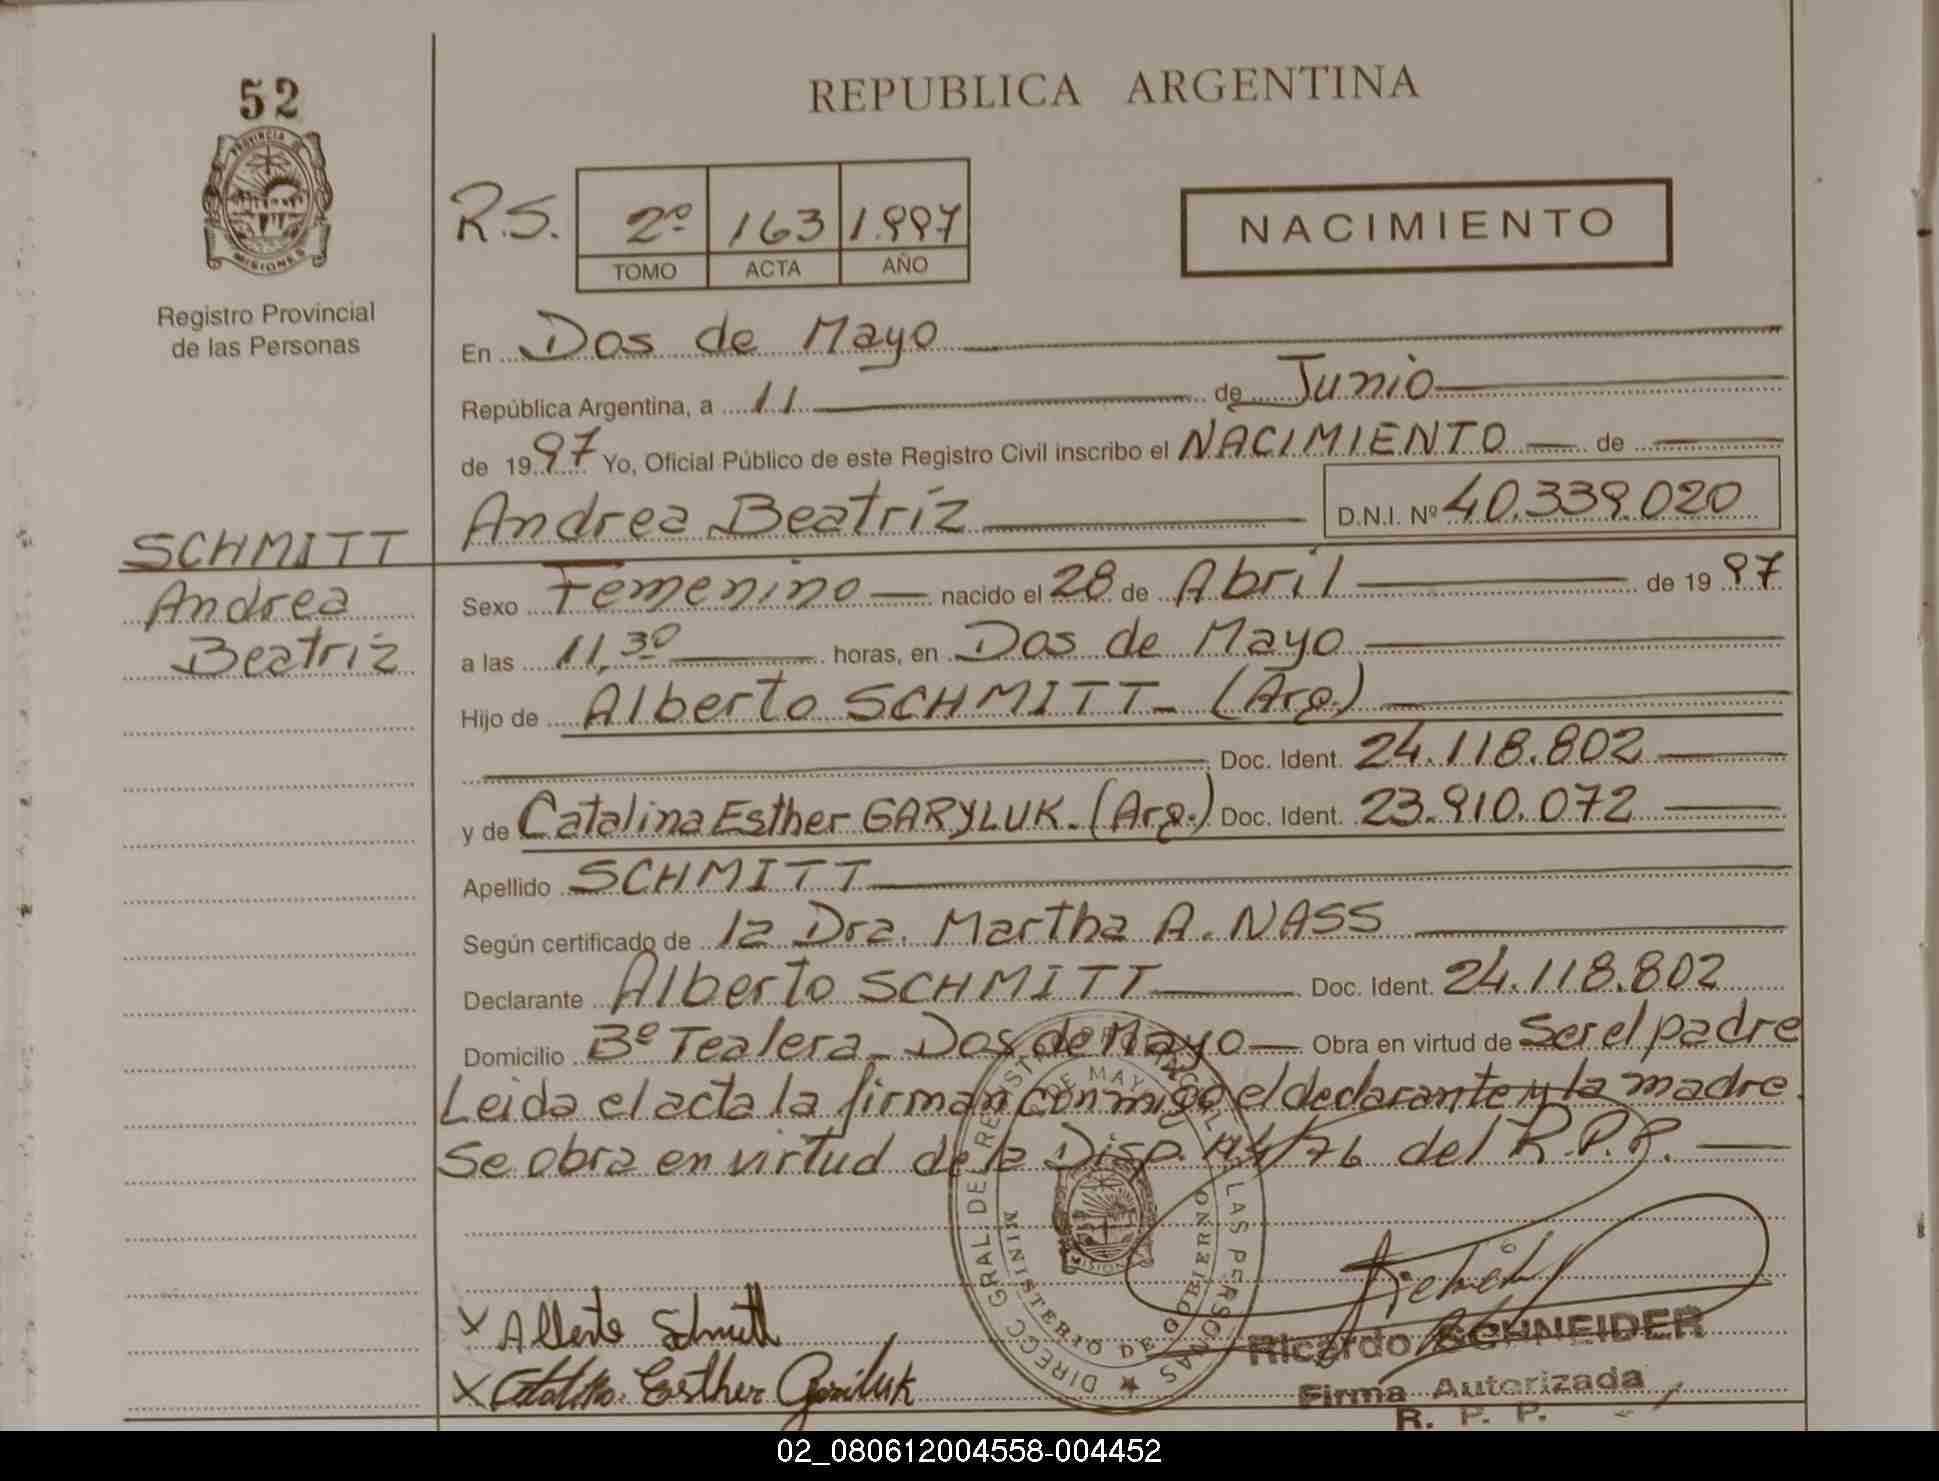 52
PROVINCIA DE
MISIONES
Registro Provincial
de las Personas
REPUBLICA ARGENTINA
R.S. 2º 163 1.997
TOMO ACTA AÑO
NACIMIENTO
En Dos de Mayo
República Argentina, a 11 de Junio
de 1997 Yo, Oficial Público de este Registro Civil inscribo el NACIMIENTO de
Andrea Beatríz D.N.I. Nº 40.339.020
SCHMITT
Andrea
Beatríz
Sexo Femenino nacido el 28 de Abril de 1997
a las 11,30 horas, en Dos de Mayo
Hijo de Alberto SCHMITT_ (Arg.)
Doc. Ident. 24.118.802
y de Catalina Esther GARYLUK_ (Arg.) Doc. Ident. 23.910.072
Apellido SCHMITT
Según certificado de la Dra. Martha A. NASS
Declarante Alberto SCHMITT Doc. Ident. 24.118.802
Domicilio Bº Tealera_ Dos de Mayo Obra en virtud de Ser el padre
Leida el acta la firman conmigo el declarante y la madre.
Se obra en virtud de la Disp. 14/76 del R.P.P.
DIRECC GRAL DE REGIST LAS PERSONAS
DE MAYO
MINISTERIO DE GOBIERNO
MISIONES
x Alberto Schmitt
x Catalina Esther Gariluk
Ricardo SCHNEIDER
Firma Autorizada
R. P. P.
02_080612004558-004452